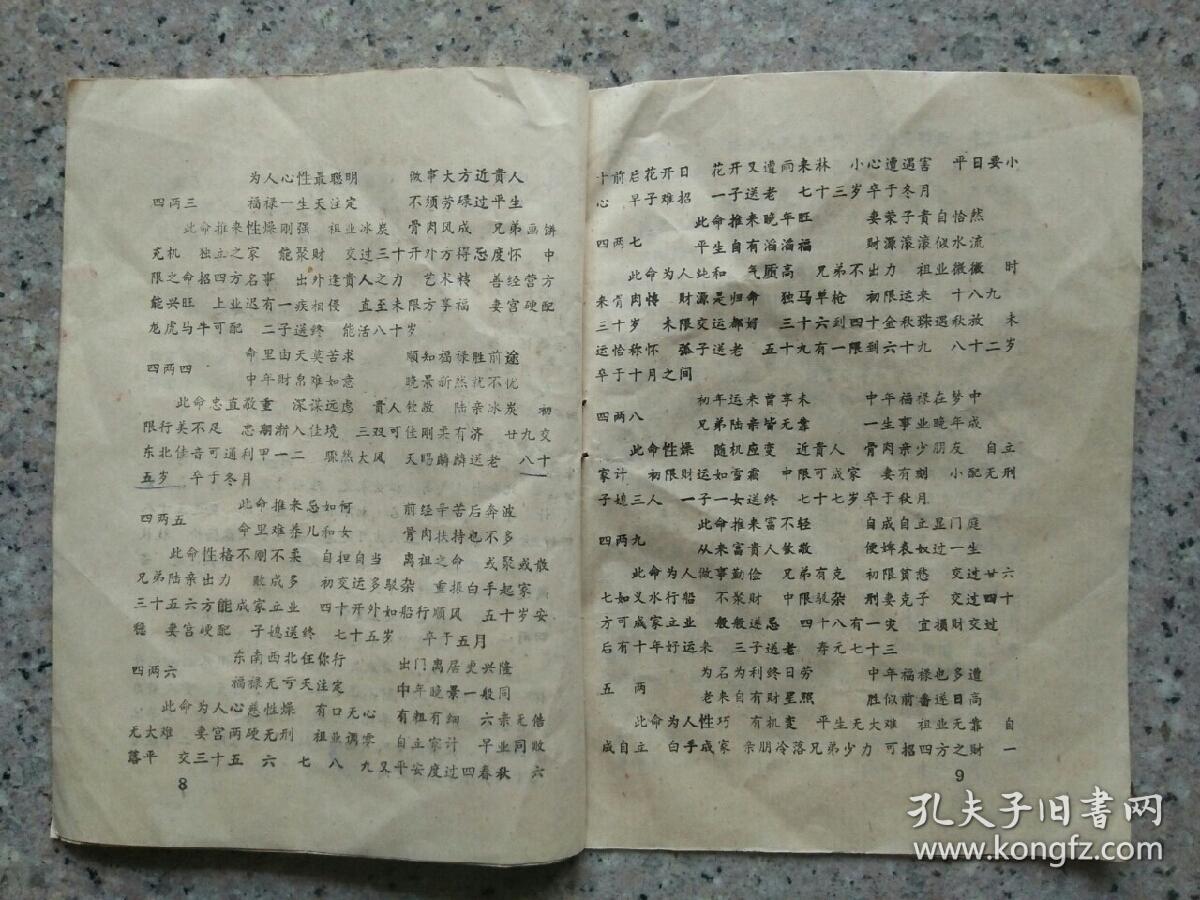 为人心性最聪明 做事大方近贵人
四两三 福禄一生天注定 不须劳碌过平生
此命推来性燥刚强 祖业冰炭 骨肉风成 兄弟画饼
充机 独立之家 能聚财 交过三十开外方得怎度怀 中
限之命招四方名事 出外逢贵人之力 艺术精 善经营方
能兴旺 上业迟有一疾相侵 直至末限方享福 妻宫硬配
龙虎马牛可配 二子送终 能活八十岁
命里由天莫苦求 顺知福禄胜前途
四两四 中年财帛难如意 晚景新然就不忧
此命忠直敬重 深谋远虑 贵人钦敬 陆亲冰炭 初
限行美不足 忠朝渐入佳境 三双可佳刚柔有济 廿九交
东北佳音可通利甲一二 骤然大风 天赐麟麟送老 八十
五岁 卒于冬月
此命推来总如何 前经辛苦后奔波
四两五 命里难养儿和女 骨肉扶持也不多
此命性格不刚不柔 自担自当 离祖之命 或聚或散
兄弟陆亲出力 败成多 初交运多驳杂 重振白手起家
三十五六方能成家立业 四十开外如船行顺风 五十岁安
稳 妻宫硬配 子媳送终 七十五岁 卒于五月
东南西北任你行 出门离居更兴隆
四两六 福禄无亏天注定 中年晚景一般同
此命为人心慈性燥 有口无心 有粗有细 六亲无倍
无大难 妻宫两硬无刑 祖业调零 自立家计 早业同收
落平 交三十五 六 七 八 九又平安度过四春秋 六
8
十前后花开日 花开又遭雨来林 小心遭遇害 平日要小
心 早子难招 一子送老 七十三岁卒于冬月
此命推来晚年旺 妻荣子贵自怡然
四两七 平生自有滔滔福 财源滚滚似水流
此命为人炖和 气质高 兄弟不出力 祖业微微 时
来骨肉情 财源是归命 独马单枪 初限运来 十八九
三十岁 末限交运都好 三十六到四十金秋珠遇秋放 末
运恰称怀 孤子送老 五十九有一限到六十九 八十二岁
卒于十月之间
初年运来曾享未 中年福禄在梦中
四两八 兄弟陆亲皆无靠 一生事业晚年成
此命性燥 随机应变 近贵人 骨肉亲少朋友 自立
家计 初限财运如雪霜 中限可成家 妻有刱 小配无刑
子媳三人 一子一女送终 七十七岁卒于秋月
此命推来富不轻 自成自立显门庭
四两九 从来富贵人钦敬 便婢衷奴过一生
此命为人做事勤俭 兄弟有克 初限贫愁 交过廿六
七如义水行船 不聚财 中限驳杂 刑妻克子 交过四十
方可成家立业 般般遂忌 四十八有一灾 宜损财交过
后有十年好运来 三子送老 寿元七十三
为名为利终日劳 中年福禄也多遭
五 两 老来自有财星照 胜似前番送日高
此命为人性巧 有机变 平生无大难 祖业无靠 自
成自立 白手成家 亲朋冷落兄弟少力 可招四方之财 一
9
孔夫子旧书网
www.kongfz.com